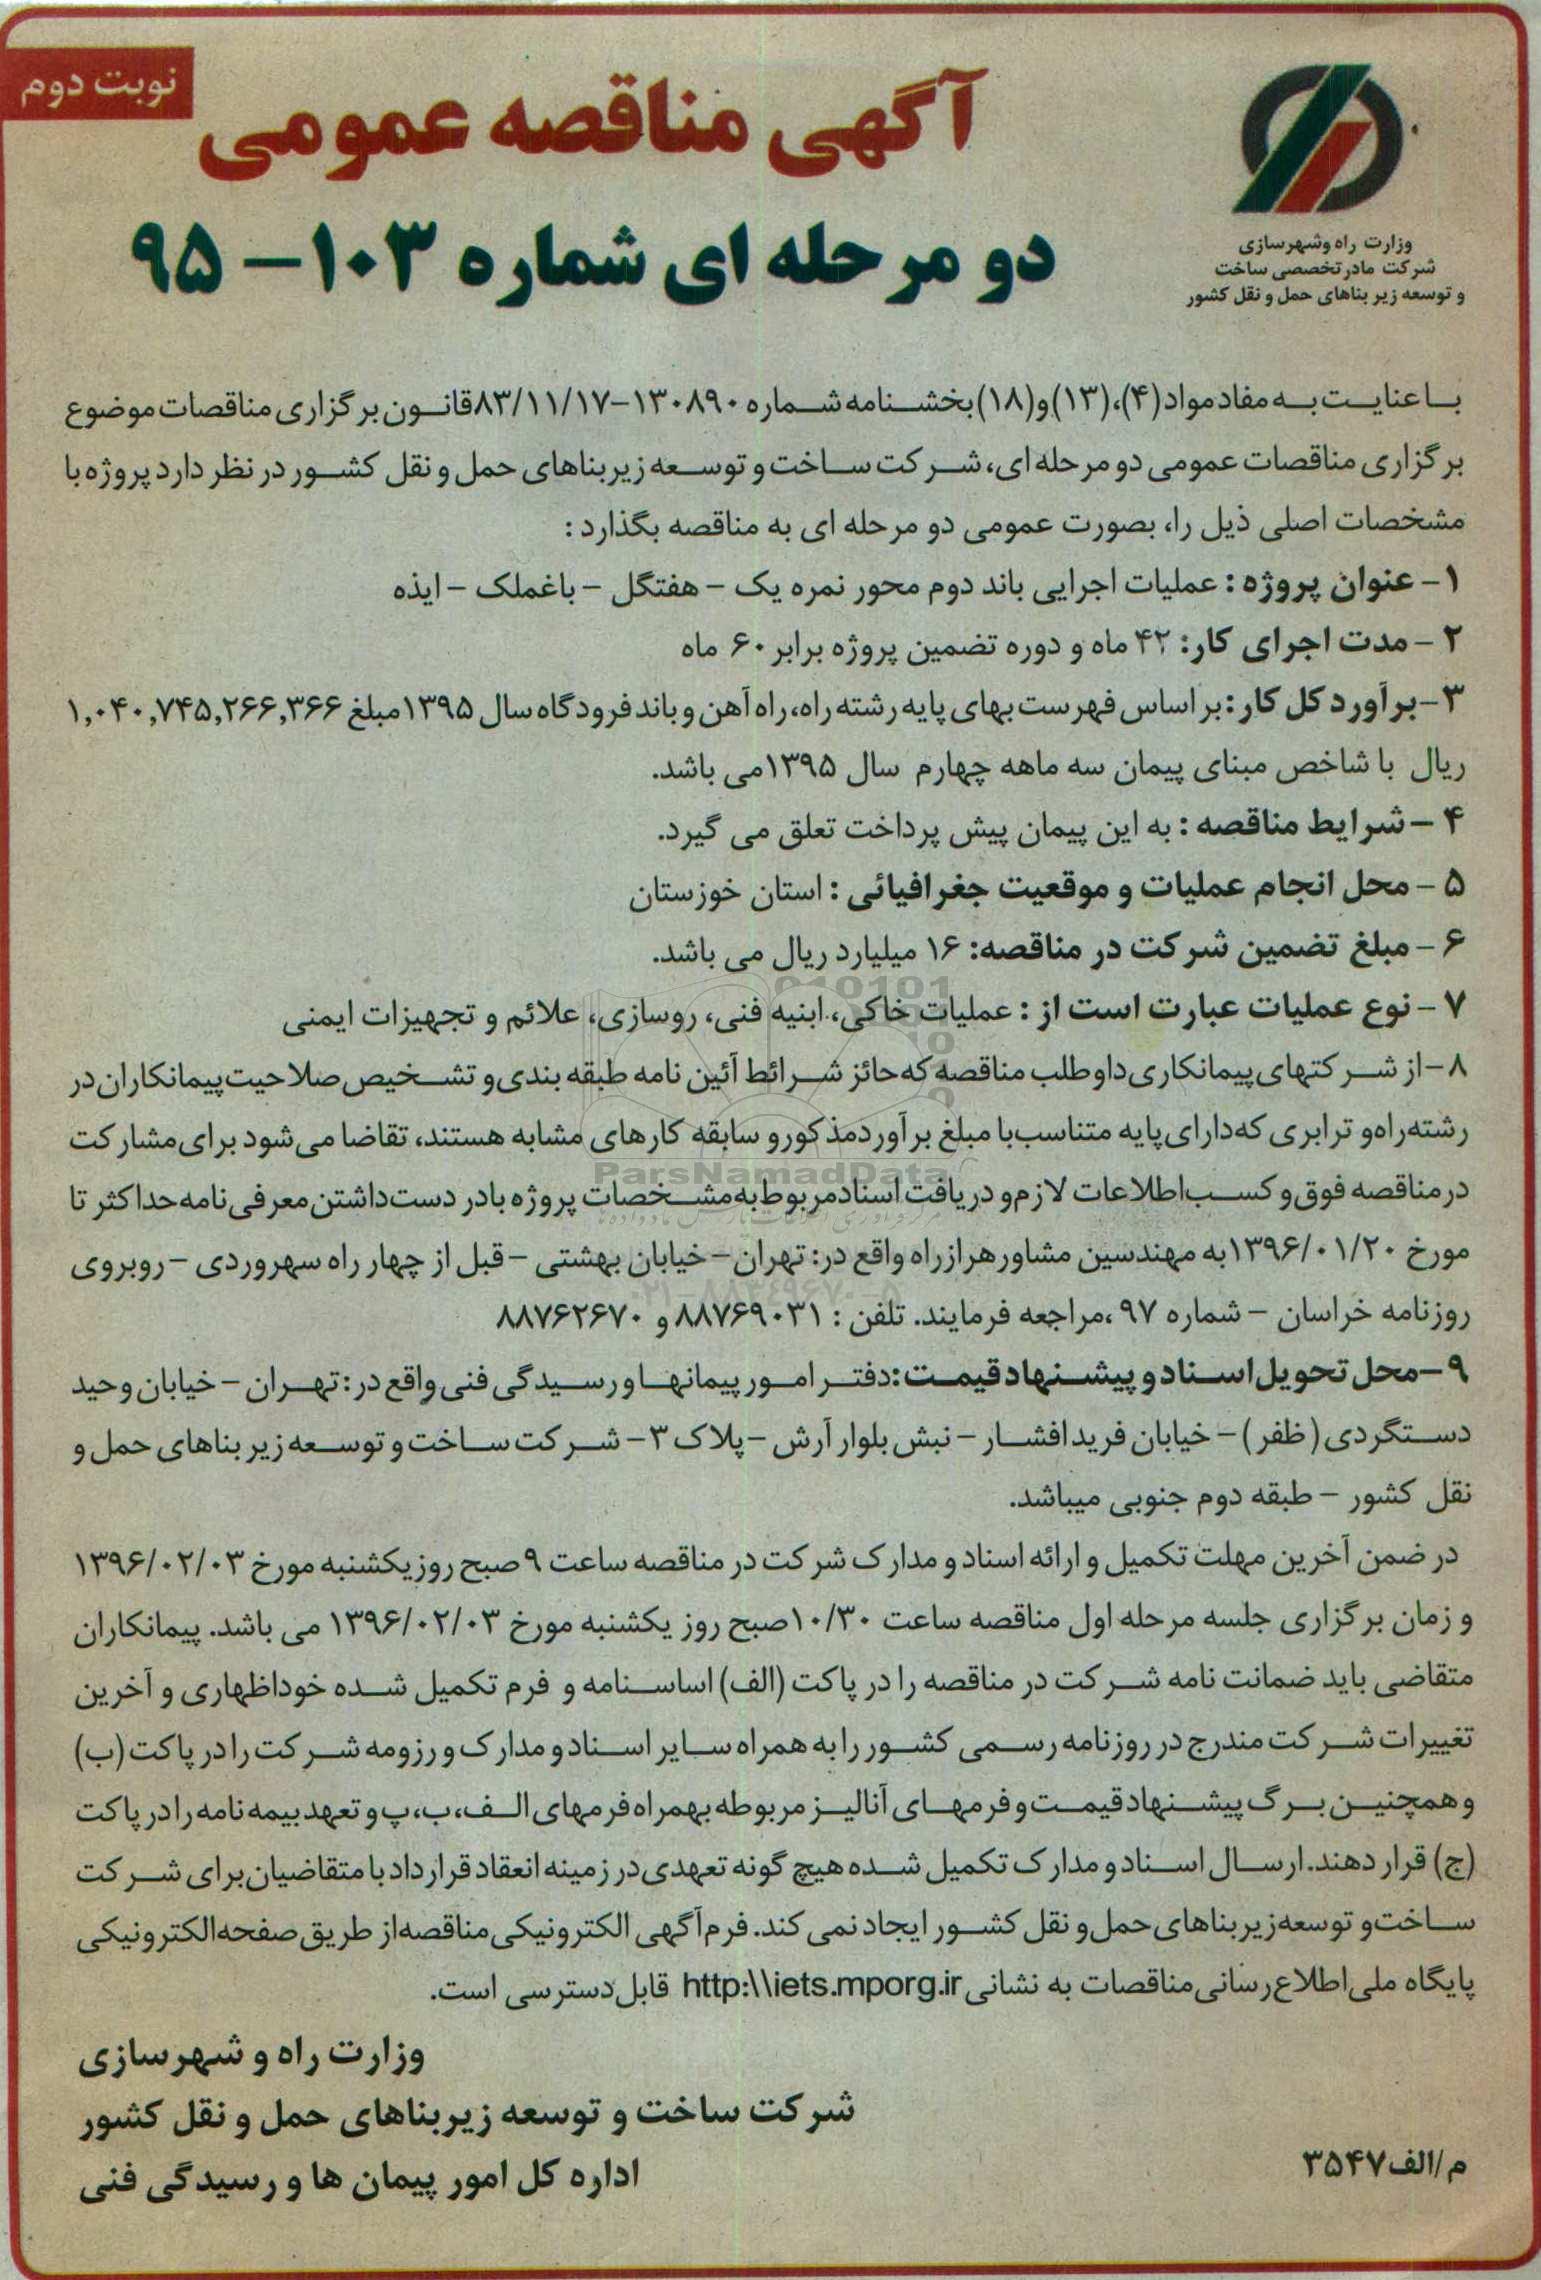 نوبت دوم
آگهی مناقصه عمومی
دو مرحله ای شماره ۱۰۳- ۹۵
وزارت راه وشهرسازی
شرکت مادر تخصصی ساخت
و توسعه زیر بناهای حمل و نقل کشور
با عنایت به مفاد مواد (۴)، (۱۳) و (۱۸) بخشنامه شماره ۱۳۰۸۹۰-۸۳/۱۱/۱۷ قانون برگزاری مناقصات موضوع
برگزاری مناقصات عمومی دو مرحله ای، شرکت ساخت و توسعه زیربناهای حمل و نقل کشور در نظر دارد پروژه با
مشخصات اصلی ذیل را، بصورت عمومی دو مرحله ای به مناقصه بگذارد :
۱- عنوان پروژه : عملیات اجرایی باند دوم محور نمره یک - هفتگل - باغملک - ایذه
۲ - مدت اجرای کار: ۴۲ ماه و دوره تضمین پروژه برابر ۶۰ ماه
۳-برآورد کل کار: بر اساس فهرست بهای پایه رشته راه، راه آهن و باند فرودگاه سال ۱۳۹۵ مبلغ ۱,۰۴۰,۷۴۵,۲۶۶,۳۶۶
ریال با شاخص مبنای پیمان سه ماهه چهارم سال ۱۳۹۵ می باشد.
۴ - شرایط مناقصه : به این پیمان پیش پرداخت تعلق می گیرد.
۵ - محل انجام عملیات و موقعیت جغرافیائی : استان خوزستان
۶ - مبلغ تضمین شرکت در مناقصه: ۱۶ میلیارد ریال می باشد.
۷ - نوع عملیات عبارت است از : عملیات خاکی، ابنیه فنی، روسازی، علائم و تجهیزات ایمنی
۸-از شرکتهای پیمانکاری داوطلب مناقصه که حائز شرائط آئین نامه طبقه بندی و تشخیص صلاحیت پیمانکاران در
رشته راه و ترابری که دارای پایه متناسب با مبلغ برآورد مذکور و سابقه کارهای مشابه هستند، تقاضا می شود برای مشارکت
در مناقصه فوق و کسب اطلاعات لازم و دریافت اسناد مربوط به مشخصات پروژه با در دست داشتن معرفی نامه حداکثر تا
مورخ ۱۳۹۶/۰۱/۲۰ به مهندسین مشاور هرازراه واقع در: تهران- خیابان بهشتی - قبل از چهار راه سهروردی - روبروی
روزنامه خراسان - شماره ۹۷ ،مراجعه فرمایند. تلفن : ۸۸۷۶۹۰۳۱ و ۸۸۷۶۲۶۷۰
۹-محل تحویل اسناد و پیشنهاد قیمت: دفتر امور پیمانها و رسیدگی فنی واقع در: تهران - خیابان وحید
دستگردی (ظفر) - خیابان فرید افشار - نبش بلوار آرش - پلاک ۳- شرکت ساخت و توسعه زیر بناهای حمل و
نقل کشور - طبقه دوم جنوبی میباشد.
در ضمن آخرین مهلت تکمیل و ارائه اسناد و مدارک شرکت در مناقصه ساعت ۹ صبح روز یکشنبه مورخ ۱۳۹۶/۰۲/۰۳
و زمان برگزاری جلسه مرحله اول مناقصه ساعت ۱۰/۳۰ صبح روز یکشنبه مورخ ۱۳۹۶/۰۲/۰۳ می باشد. پیمانکاران
متقاضی باید ضمانت نامه شرکت در مناقصه را در پاکت (الف) اساسنامه و فرم تکمیل شده خوداظهاری و آخرین
تغییرات شرکت مندرج در روزنامه رسمی کشور را به همراه سایر اسناد و مدارک و رزومه شرکت را در پاکت (ب)
و همچنین برگ پیشنهاد قیمت و فرمهای آنالیز مربوطه بهمراه فرمهای الف، ب، پ و تعهد بیمه نامه را در پاکت
(ج) قرار دهند. ارسال اسناد و مدارک تکمیل شده هیچ گونه تعهدی در زمینه انعقاد قرارداد با متقاضیان برای شرکت
ساخت و توسعه زیربناهای حمل و نقل کشور ایجاد نمی کند. فرم آگهی الکترونیکی مناقصه از طریق صفحه الکترونیکی
پایگاه ملی اطلاع رسانی مناقصات به نشانی http:\\iets.mporg.ir قابل دسترسی است.
وزارت راه و شهرسازی
شرکت ساخت و توسعه زیربناهای حمل و نقل کشور
اداره کل امور پیمان ها و رسیدگی فنی
م/الف ۳۵۴۷
ParsNamadData